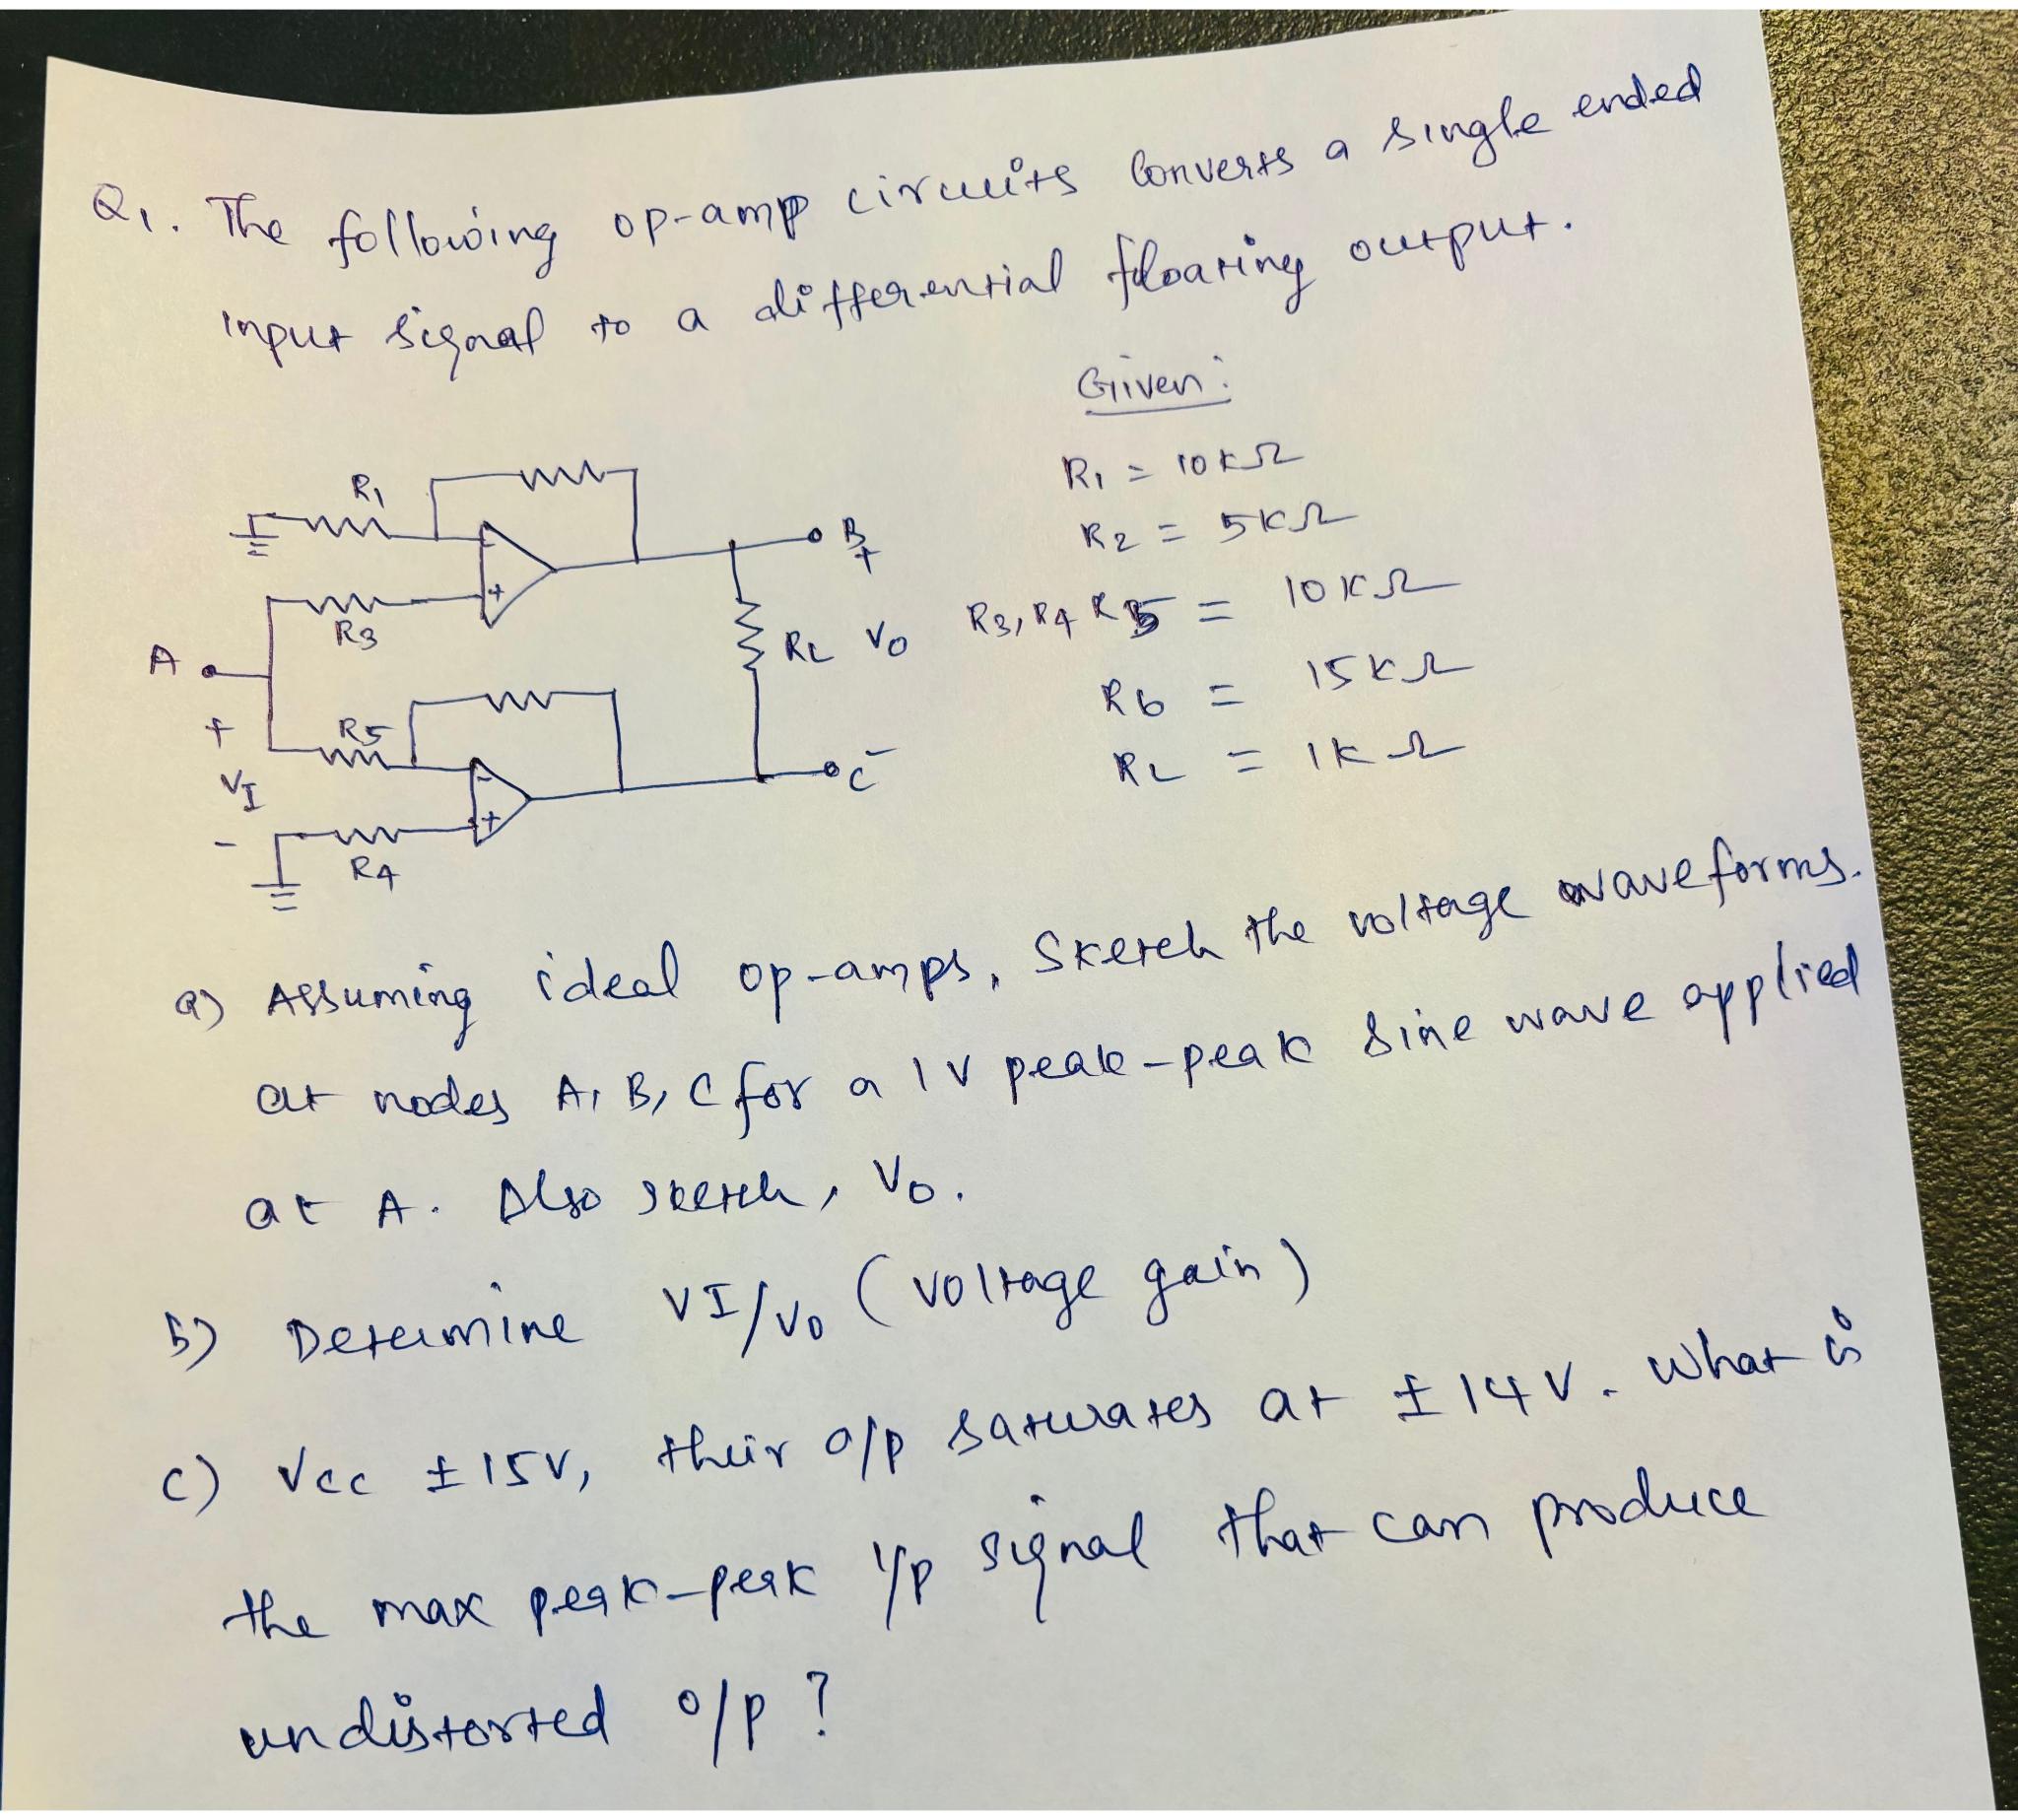 Q1. The following op-amp circuits converts a single ended
input signal to a differential floating output.
Given:
R1 = 10KΩ
R2 = 5KΩ
R3, R4 R5 = 10KΩ
R6 = 15KΩ
RL = 1KΩ
R1
-
+
R3
A
+
VI
-
R5
-
+
R4
B
+
RL VO
C -
a) Assuming ideal op-amps, Sketch the voltage waveforms.
at nodes A, B, C for a 1V peak-peak sine wave applied
at A. Also sketch, VO.
b) Determine VI/VO (voltage gain)
c) Vcc ±15V, their o/p saturates at ±14V. What is
the max peak-peak i/p signal that can produce
undistorted o/p ?